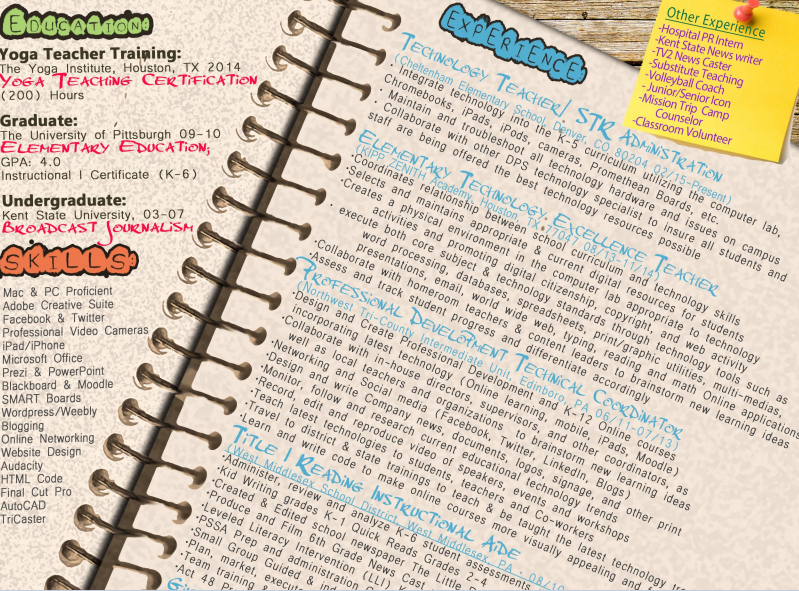 Education:
Yoga Teacher Training:
The Yoga Institute, Houston, TX 2014
Yoga Teaching Certification
(200) Hours
Graduate:
The University of Pittsburgh 09-10
Elementary Education;
GPA: 4.0
Instructional I Certificate (K-6)
Undergraduate:
Kent State University, 03-07
Broadcast Journalism
SKILLS:
Mac & PC Proficient
Adobe Creative Suite
Facebook & Twitter
Professional Video Cameras
iPad/iPhone
Microsoft Office
Prezi & PowerPoint
Blackboard & Moodle
SMART Boards
Wordpress/Weebly
Blogging
Online Networking
Website Design
Audacity
HTML Code
Final Cut Pro
AutoCAD
TriCaster
Experience:
Technology Teacher/ STR Administration
(Cheltenham Elementary School, Denver, CO 80204 02/15-Present)
· Integrate technology into the K-5 curriculum utilizing the computer lab,
Chromebooks, iPads, iPods, cameras, Promethean Boards, etc.
· Maintain and troubleshoot all technology hardware and issues on campus
· Collaborate with other DPS technology specialist to insure all students and
staff are being offered the best technology resources possible
Elementary Technology Excellence Teacher
(KIPP ZENITH Academy, Houston, TX 77047 08/13-11/14)
·Coordinates relationship between school curriculum and technology skills
·Selects and maintains appropriate & current digital resources for students
·Creates a physical environment in the computer lab appropriate to technology
activities and promoting digital citizenship, copyright, and web activity
· execute both core subject & technology standards through technology tools such as
word processing, databases, spreadsheets, print/graphic utilities, multi-medias,
presentations, email, world wide web, typing, reading and math Online applications
·Collaborate with homeroom teachers & content leaders to brainstorm new learning ideas
·Assess and track student progress and differentiate accordingly
Professional Development Technical Coordinator
(Northwest Tri-County Intermediate Unit, Edinboro, PA, 06/11-07/13)
·Design and Create Professional Development and K-12 Online courses
incorporating latest technology (Online learning, mobile, iPads, Moodle)
·Collaborate with in-house directors, supervisors, and other coordinators, as
well as local teachers and organizations, to brainstorm new learning ideas
·Networking and Social media (Facebook, Twitter, LinkedIn, Blogs)
·Design and write Company news, documents, logos, signage, and other print
·Monitor, follow and research current educational technology trends
·Record, edit and reproduce video of speakers, events and workshops
·Teach latest technologies to students, teachers and Co-workers
·Travel to district & state trainings to teach & be taught the latest technology
·Learn and write code to make online courses more visually appealing and
Title I Reading Instructional Aide
(West Middlesex School District, West Middlesex, PA · 08/10
·Administer, review and analyze K-6 student assessments
·Kid Writing grades K-1 Quick Reads Grades 2-4
·Created & Edited school newspaper The Little
·Produce and Film 6th Grade News Cast
·Leveled Literacy Intervention (LLI)
·PSSA Prep and administration
·Small Group Guided &
·Plan, market, execute
·Team training &
·Act 48
Other Experience
-Hospital PR Intern
-Kent State News writer
-TV2 News Caster
-Substitute Teaching
-Volleyball Coach
-Junior/Senior Icon
-Mission Trip Camp
Counselor
-Classroom Volunteer